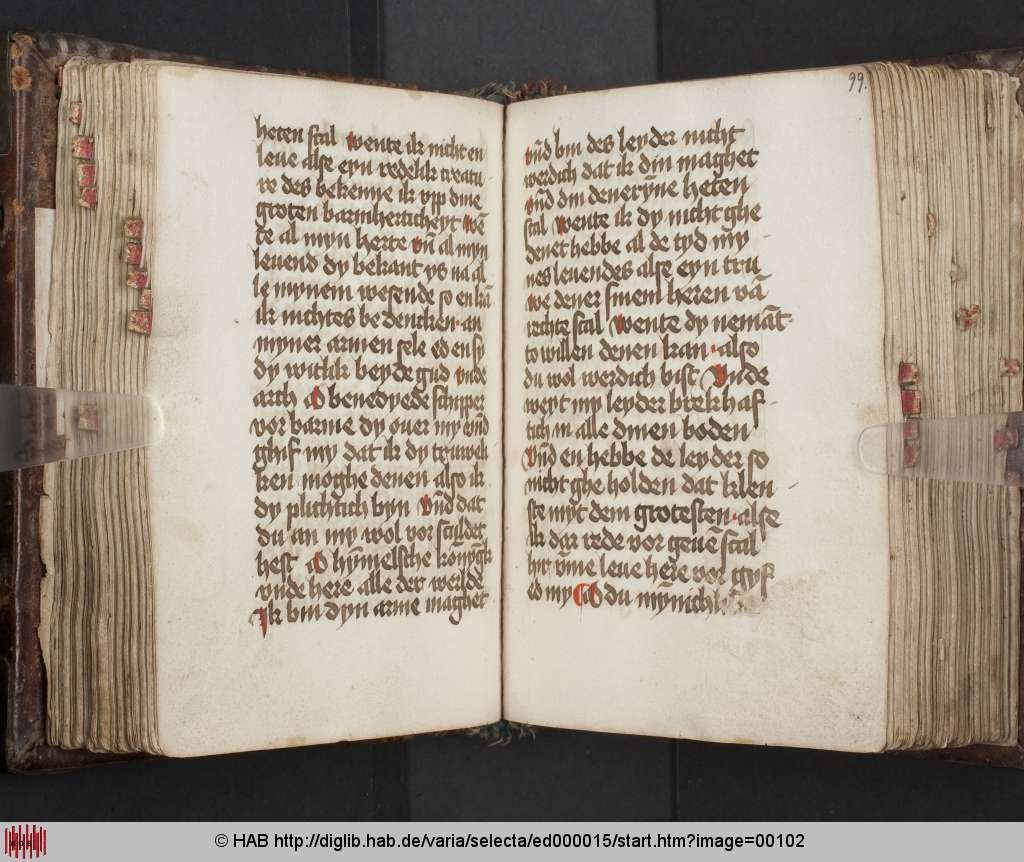 heten scal wente ik nicht en
leue alse eyn redelik creatu
re des bekenne ik vpp dine
groten barmherticheyt wē
te al myn herte vn̄ al myn
leuend dy bekant ys na al
le mynem wesende so en kā
ik nichtes bedencken an
myner armen sele ed en sy
dy witlik beyde gud vnde
arch O benedyede schipper
vor barme dy ouer my vn̄d
ghif my dat ik dy truweli
ken moghe denen also ik
dy plichtich byn vn̄d dat
du an my wol vor sculdet
hest O hȳmelsche konyngk
vnde here alle der werlde
Ik bin dyn arme maghet
99.
vn̄d bin des leyder nicht
werdich dat ik din maghet
vn̄d din denerȳne heten
scal wente ik dy nicht ghe
denet hebbe al de tyd my
nes leuendes alse eyn tru
we dener sinem heren vā
rechte scal wente dy nemāt
to willen denen kan also
du wol werdich bist Vnde
weyt my leyder brekhaf
tich in alle dinen boden
vn̄d en hebbe de leyder so
nicht ghe holden dat klen
ste myt dem grotesten alse
ik dar rede vor geuē scal
hir vm̄e leue here vor gyf
ed my O du mȳnich
© HAB http://diglib.hab.de/varia/selecta/ed000015/start.htm?image=00102